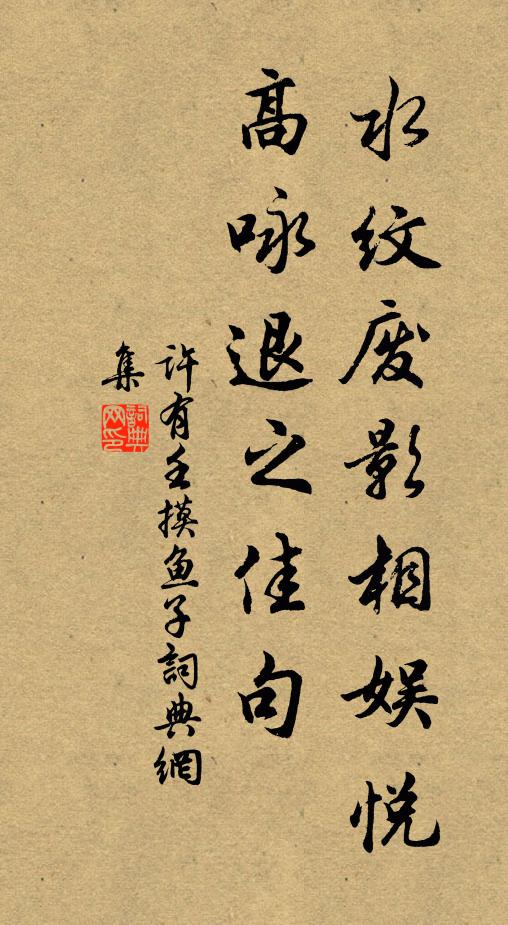 水纹废影相娱悦
高咏退之佳句
许有壬摸鱼子詞典網
集
詞典網印